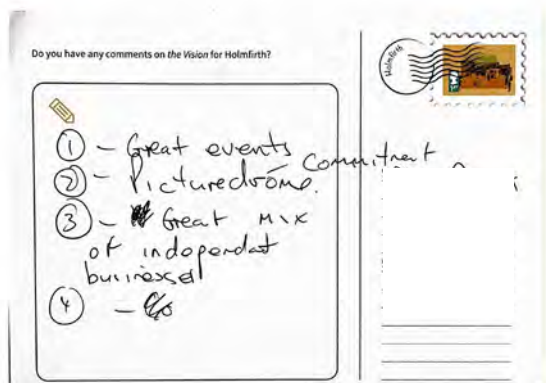 Do you have any comments on the Vision for Holmfirth?
Holmfirth
① - Great events
② - Picturedrome. Commitment
③ - Great mix
of independat
businesses
④ -